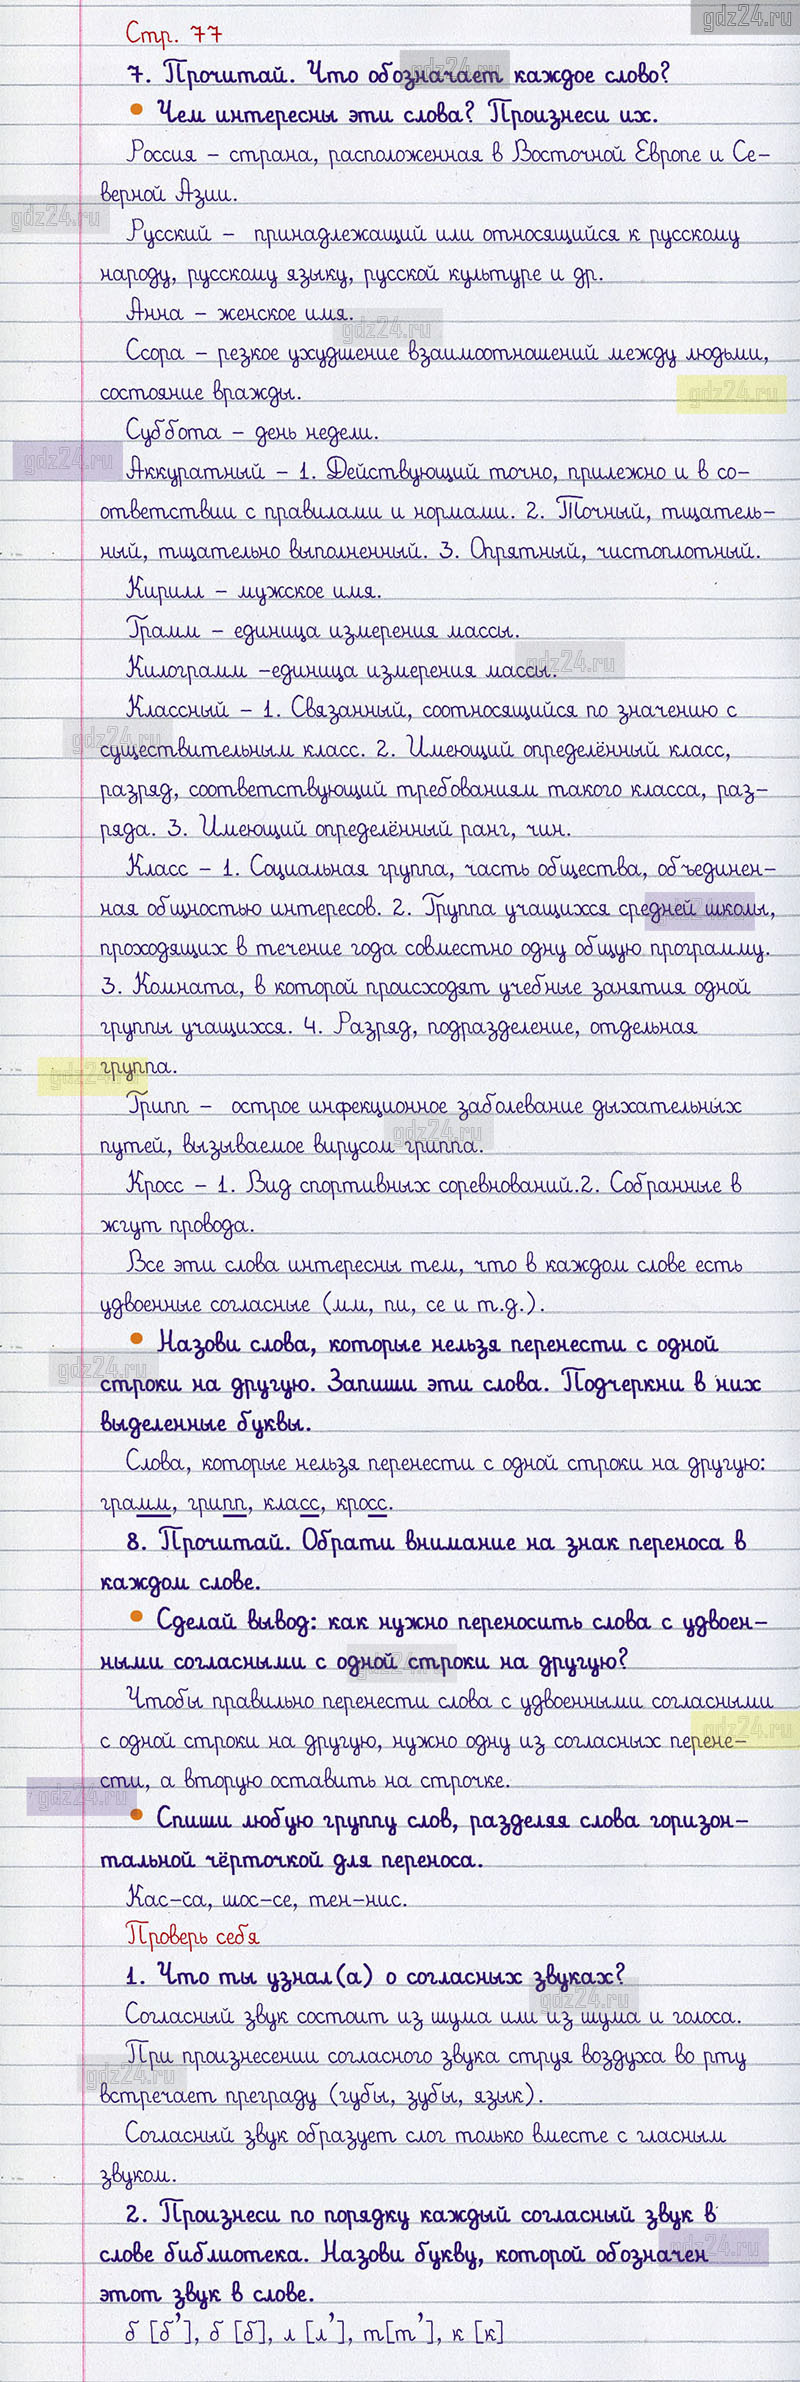 gdz24.ru
Стр. 77
7. Прочитай. Что обозначает каждое слово?
gdz24.ru
• Чем интересны эти слова? Произнеси их.
Россия – страна, расположенная в Восточной Европе и Се-
верной Азии.
gdz24.ru
Русский – принадлежащий или относящийся к русскому
народу, русскому языку, русской культуре и др.
Анна – женское имя.
gdz24.ru
Ссора – резкое ухудшение взаимоотношений между людьми,
состояние вражды.
gdz24.ru
Суббота – день недели.
gdz24.ru
Аккуратный – 1. Действующий точно, прилежно и в со-
ответствии с правилами и нормами. 2. Точный, тщатель-
ный, тщательно выполненный. 3. Опрятный, чистоплотный.
Кирилл – мужское имя.
Грамм – единица измерения массы.
Килограмм –единица измерения массы.
gdz24.ru
Классный – 1. Связанный, соотносящийся по значению с
gdz24.ru
существительным класс. 2. Имеющий определённый класс,
разряд, соответствующий требованиям такого класса, раз-
ряда. 3. Имеющий определённый ранг, чин.
Класс – 1. Социальная группа, часть общества, объединен-
ная общностью интересов. 2. Группа учащихся средней школы,
gdz24.ru
проходящих в течение года совместно одну общую программу.
3. Комната, в которой происходят учебные занятия одной
группы учащихся. 4. Разряд, подразделение, отдельная
группа.
gdz24.ru
Грипп – острое инфекционное заболевание дыхательных
путей, вызываемое вирусом гриппа.
gdz24.ru
Кросс – 1. Вид спортивных соревнований.2. Собранные в
жгут провода.
Все эти слова интересны тем, что в каждом слове есть
удвоенные согласные (мм, пп, сс и т.д.).
• Назови слова, которые нельзя перенести с одной
gdz24.ru
строки на другую. Запиши эти слова. Подчеркни в них
выделенные буквы.
Слова, которые нельзя перенести с одной строки на другую:
грамм, грипп, класс, кросс.
8. Прочитай. Обрати внимание на знак переноса в
каждом слове.
• Сделай вывод: как нужно переносить слова с удвоен-
ными согласными с одной строки на другую?
gdz24.ru
Чтобы правильно перенести слова с удвоенными согласными
с одной строки на другую, нужно одну из согласных перене-
gdz24.ru
сти, а вторую оставить на строчке.
gdz24.ru
• Спиши любую группу слов, разделяя слова горизон-
тальной чёрточкой для переноса.
Кас-са, шос-се, тен-нис.
Проверь себя
1. Что ты узнал(а) о согласных звуках?
gdz24.ru
Согласный звук состоит из шума или из шума и голоса.
При произнесении согласного звука струя воздуха во рту
gdz24.ru
встречает преграду (губы, зубы, язык).
Согласный звук образует слог только вместе с гласным
звуком.
2. Произнеси по порядку каждый согласный звук в
слове библиотека. Назови букву, которой обозначен
gdz24.ru
этот звук в слове.
б [б'], б [б], л [л'], т[т'], к [к]